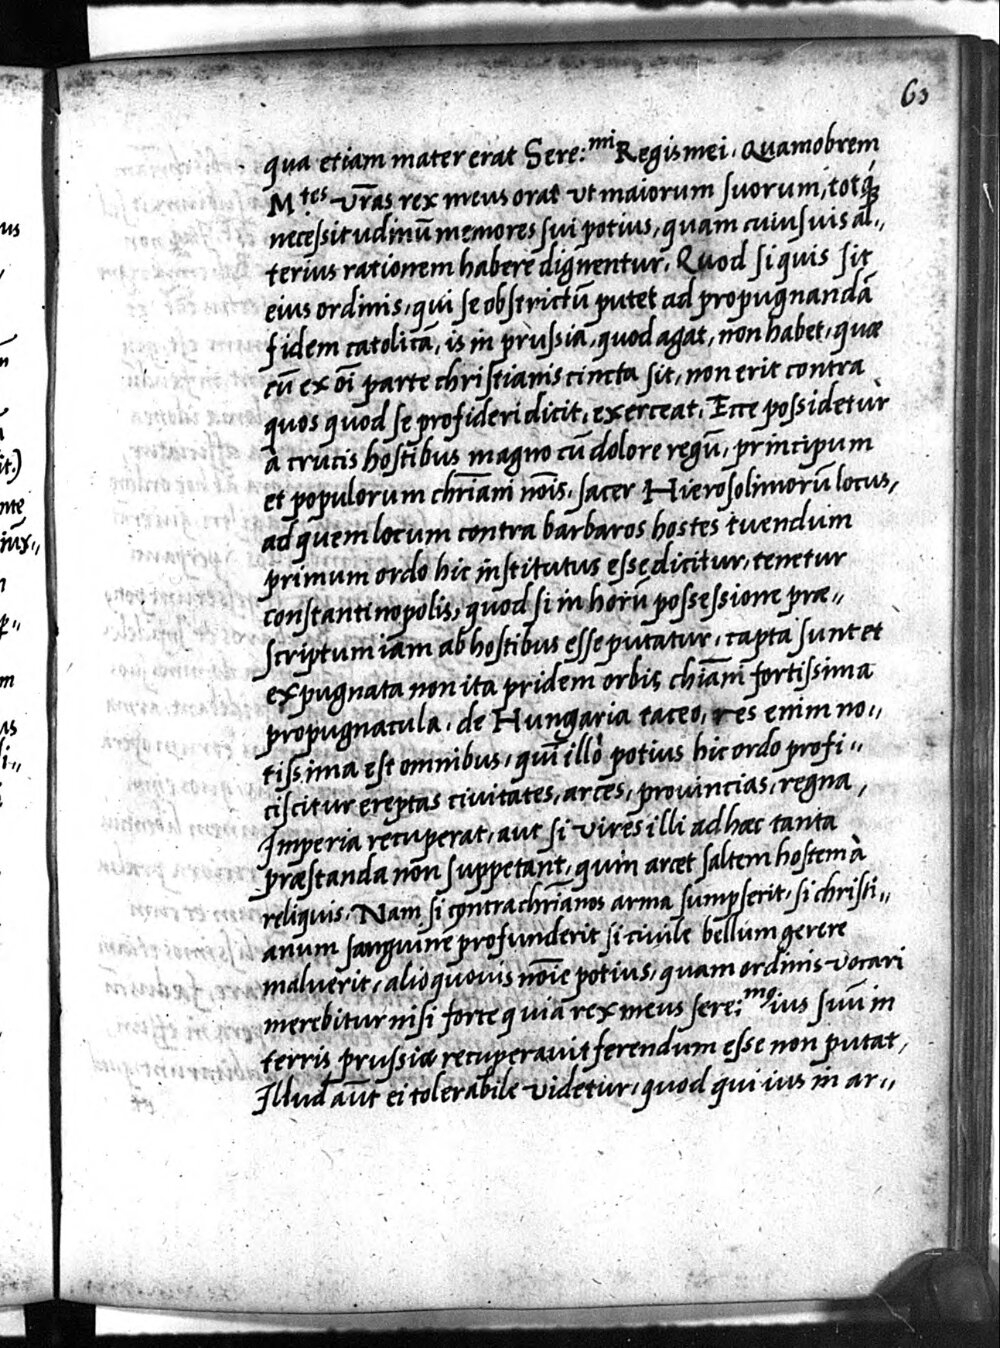 63
qua etiam mater erat Sere:mi Regis mei. Quamobrem
M.tes vr̃as rex meus orat ut maiorum suorum, totq̃
necessitudinũ memores sui potius, quam cuiusuis al-,,
terius rationem habere dignentur. Quod si quis sit
eius ordinis, qui se obstrictũ putet ad propugnandã
fidem catolicã, is in prussia, quod agat, non habet, quæ
cũ ex oĩ parte christianis cincta sit, non erit contra
quos quod se profideri dicit, exerceat. Ecce possidetur
à crucis hostibus magno cũ dolore regũ, principum
et populorum chr̃iani nõis, sacer Hierosolimorũ locus,
ad quem locum contra barbaros hostes tuendum
primum ordo hic institutus esse dicitur, tenetur
constantinopolis, quod si in horũ possessione præ-,,
scriptum iam ab hostibus esse putatur, capta sunt et
expugnata non ita pridem orbis chiãni fortissima
propugnacula. de Hungaria taceo, res enim no-,,
tissima est omnibus, quĩ illò potius hic ordo profi-,,
ciscitur ereptas ciuitates, arces, prouincias, regna,
Imperia recuperat, aut si vires illi ad hæc tanta
præstanda non suppetant, quin arcet saltem hostem à
reliquis. Nam si contra chr̃ianos arma sumpserit, si christi-,,
anum sanguinẽ profunderit si ciuile bellum gerere
maluerit, alio quouis nõie potius, quam ordinis vocari
merebitur nisi forte quia rex meus sere:mo ius suũ in
terris prussiæ recuperauit ferendum esse non putat,
Illud aũt ei tolerabile videtur, quod qui ius in ar-,,